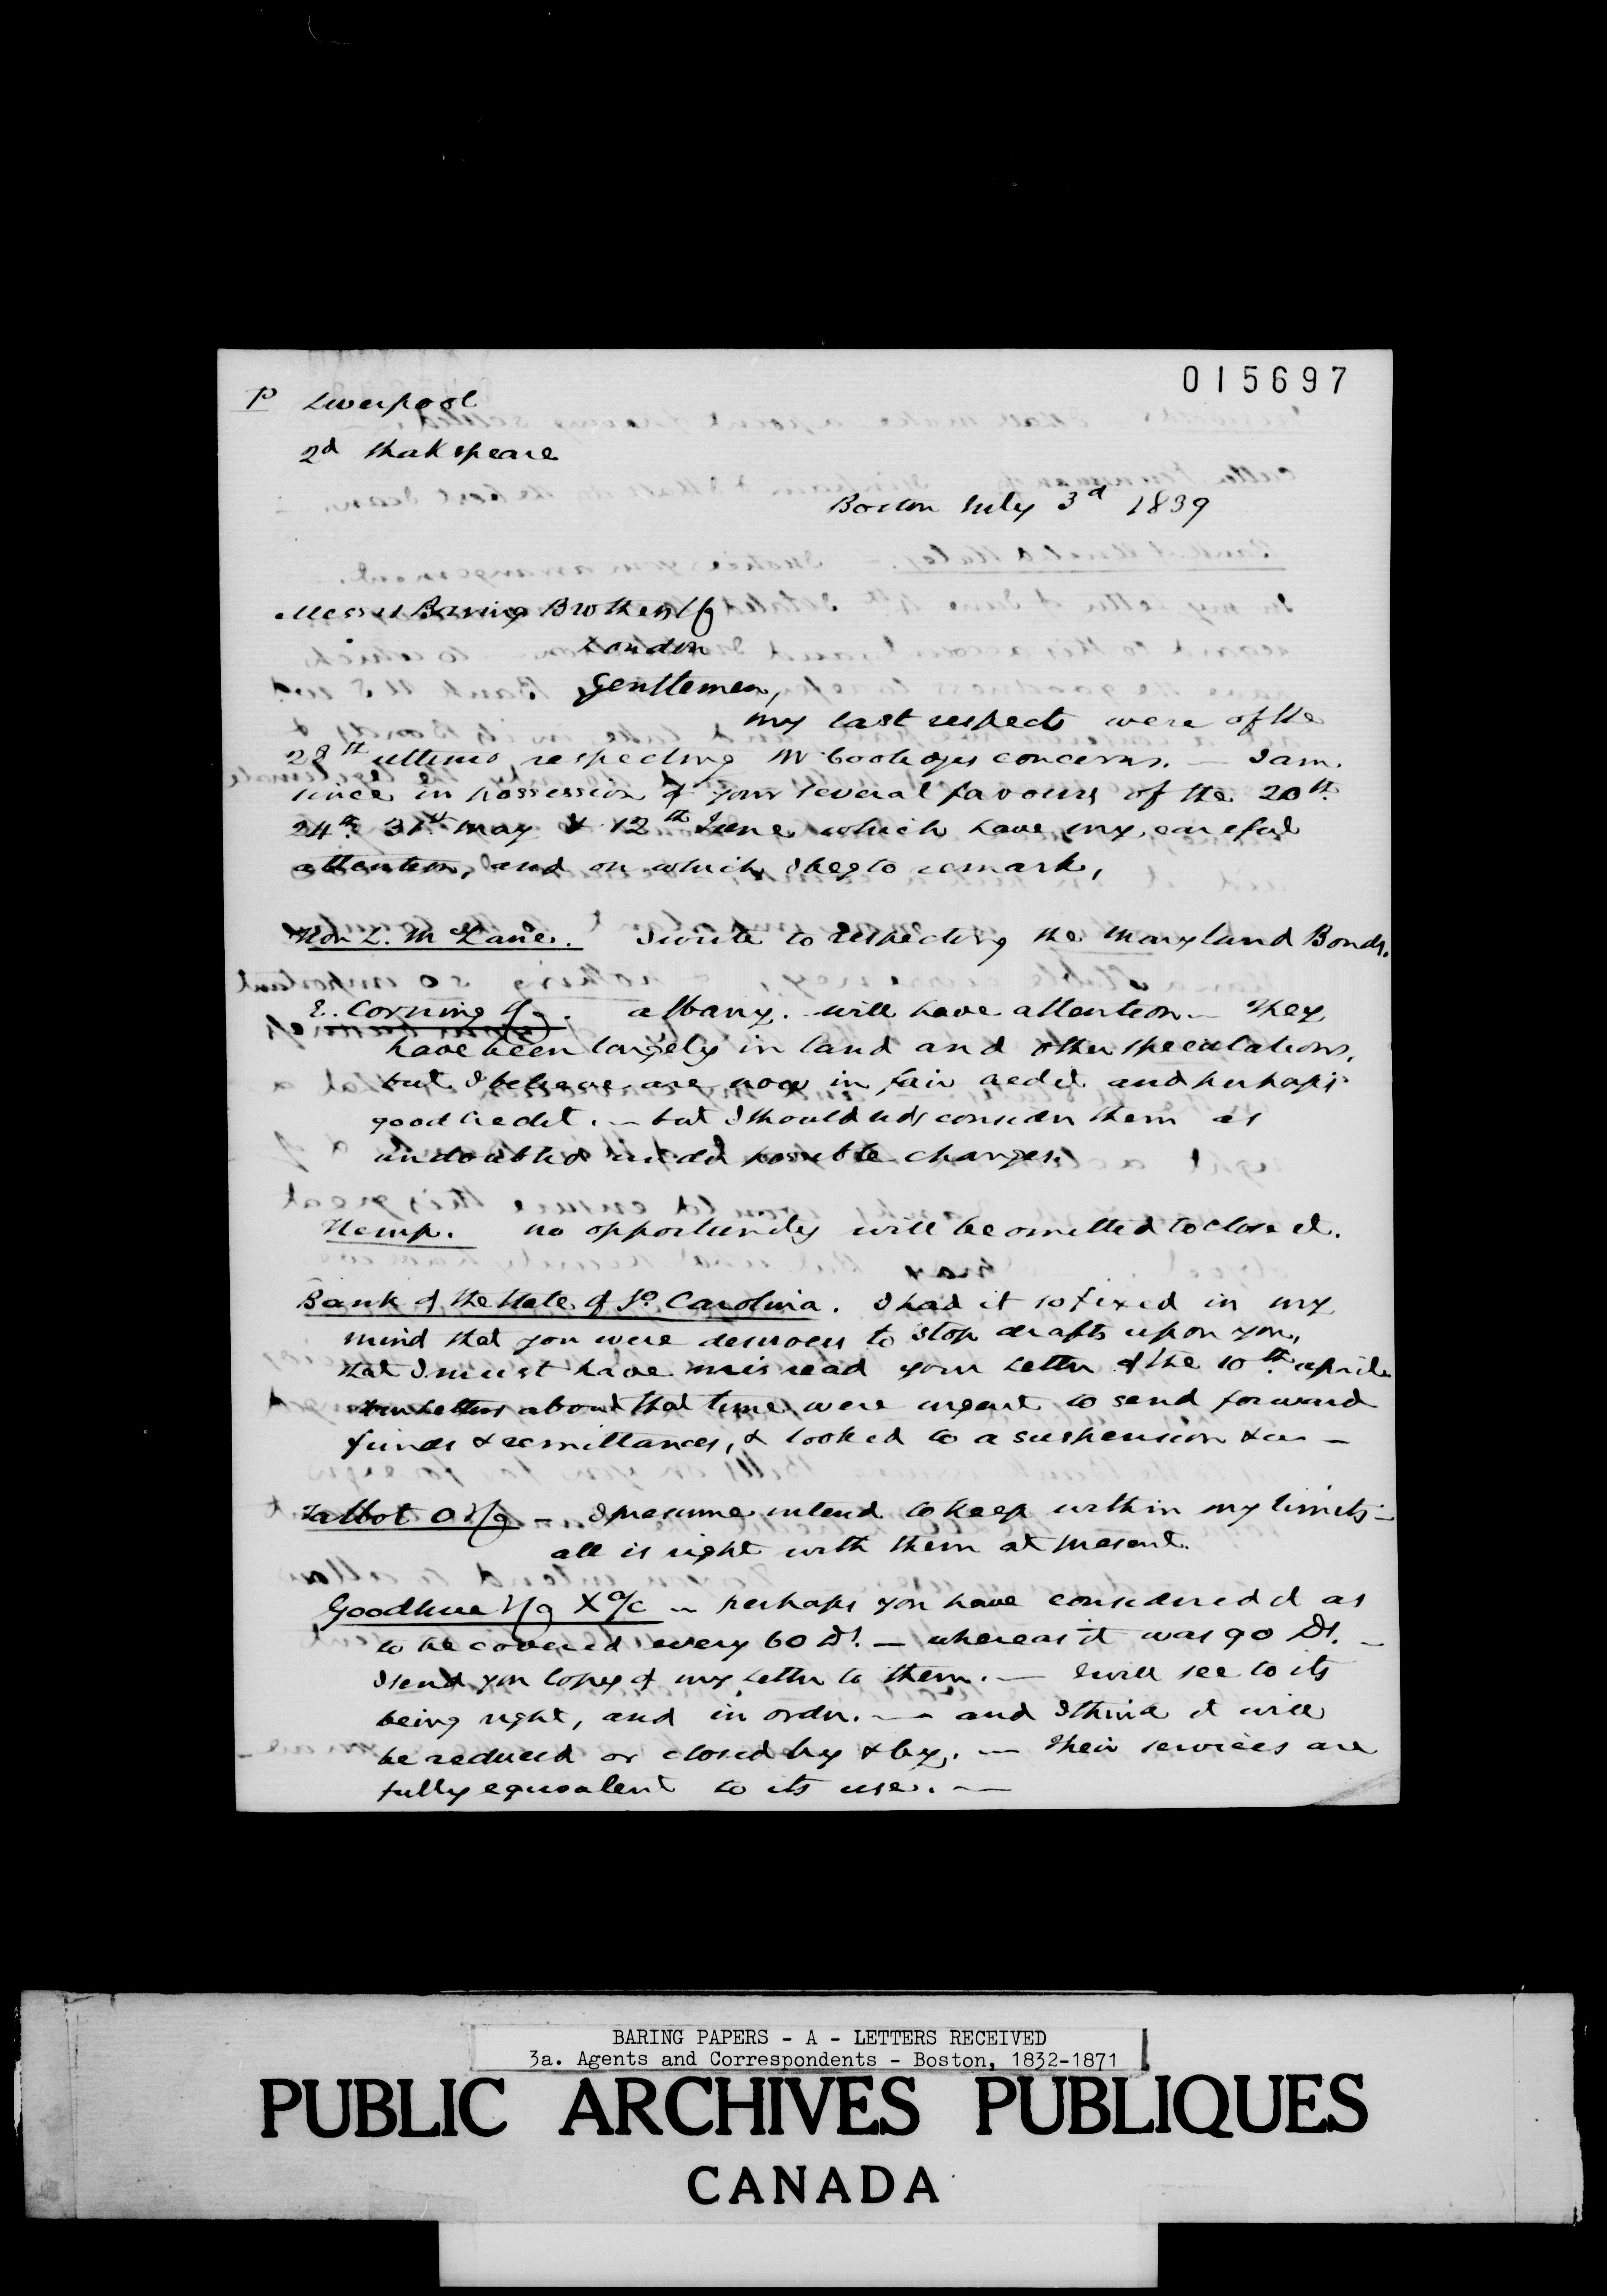 015697
P Liverpool
2d Shakspeare
Boston July 3d 1839
Messrs Baring Brothers & Co
London
Gentlemen,
My last respects were of the
28th ultimo, respecting Mr Coolidges concerns. — I am
since in possession of your several favours of the 20th
24th 31st May & 12th June which have my careful
attention, and on which I beg to remark,
Hon L. McLane. I write to respecting the Maryland Bonds.
E. Corning & Co. Albany. will have attention — They
have been largely in land and other speculations,
but I believe are now in fair credit and perhaps
good credit. — but I should not consider them as
undoubted under possible changes.
Hemp. no opportunity will be omitted to close it.
Bank of the State of So. Carolina. I had it so fixed in my
mind that you were desirous to stop drafts upon you,
that I must have misread your letter of the 10th April
Your letters about that time were urgent to send forward
funds & remittances, & looked to a suspension &c —
Talbot O & Co — I presume intend to keep within my limits —
all is right with them at present.
Goodhue & Co X a/c — perhaps you have considered it as
to be covered every 60 Ds. — whereas it was 90 Ds. —
I send you copy of my letter to them. — I will see to its
being right, and in order. — and I think it will
be reduced or closed by & by. — Their services are
fully equivalent to its use. —
BARING PAPERS - A - LETTERS RECEIVED
3a. Agents and Correspondents - Boston, 1832-1871
PUBLIC ARCHIVES PUBLIQUES
CANADA